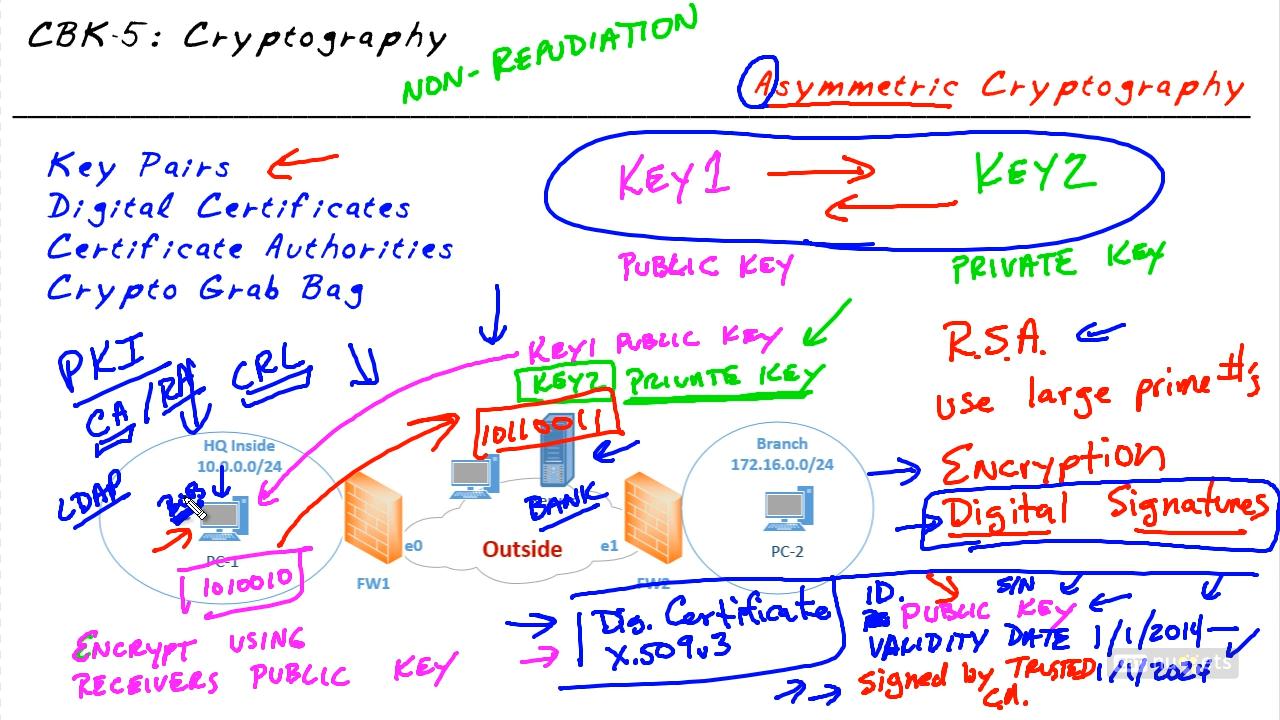 CBK-5: Cryptography
NON-REPUDIATION
Asymmetric Cryptography
Key Pairs
Digital Certificates
Certificate Authorities
Crypto Grab Bag
KEY1
KEY2
PUBLIC KEY
PRIVATE KEY
KEY1 PUBLIC KEY
KEY2 PRIVATE KEY
R.S.A.
use large prime #'s
Encryption
Digital Signatures
PKI
CA/RA
CRL
LDAP
HQ Inside
10.0.0.0/24
BOB
PC-1
1010010
10110011
BANK
FW1
e0
Outside
e1
FW2
Branch
172.16.0.0/24
PC-2
ENCRYPT USING
RECEIVERS PUBLIC KEY
Dig. Certificate
X.509v3
ID.
S/N
PUBLIC KEY
VALIDITY DATE 1/1/2014—
1/1/2024
signed by TRUSTED
CA.